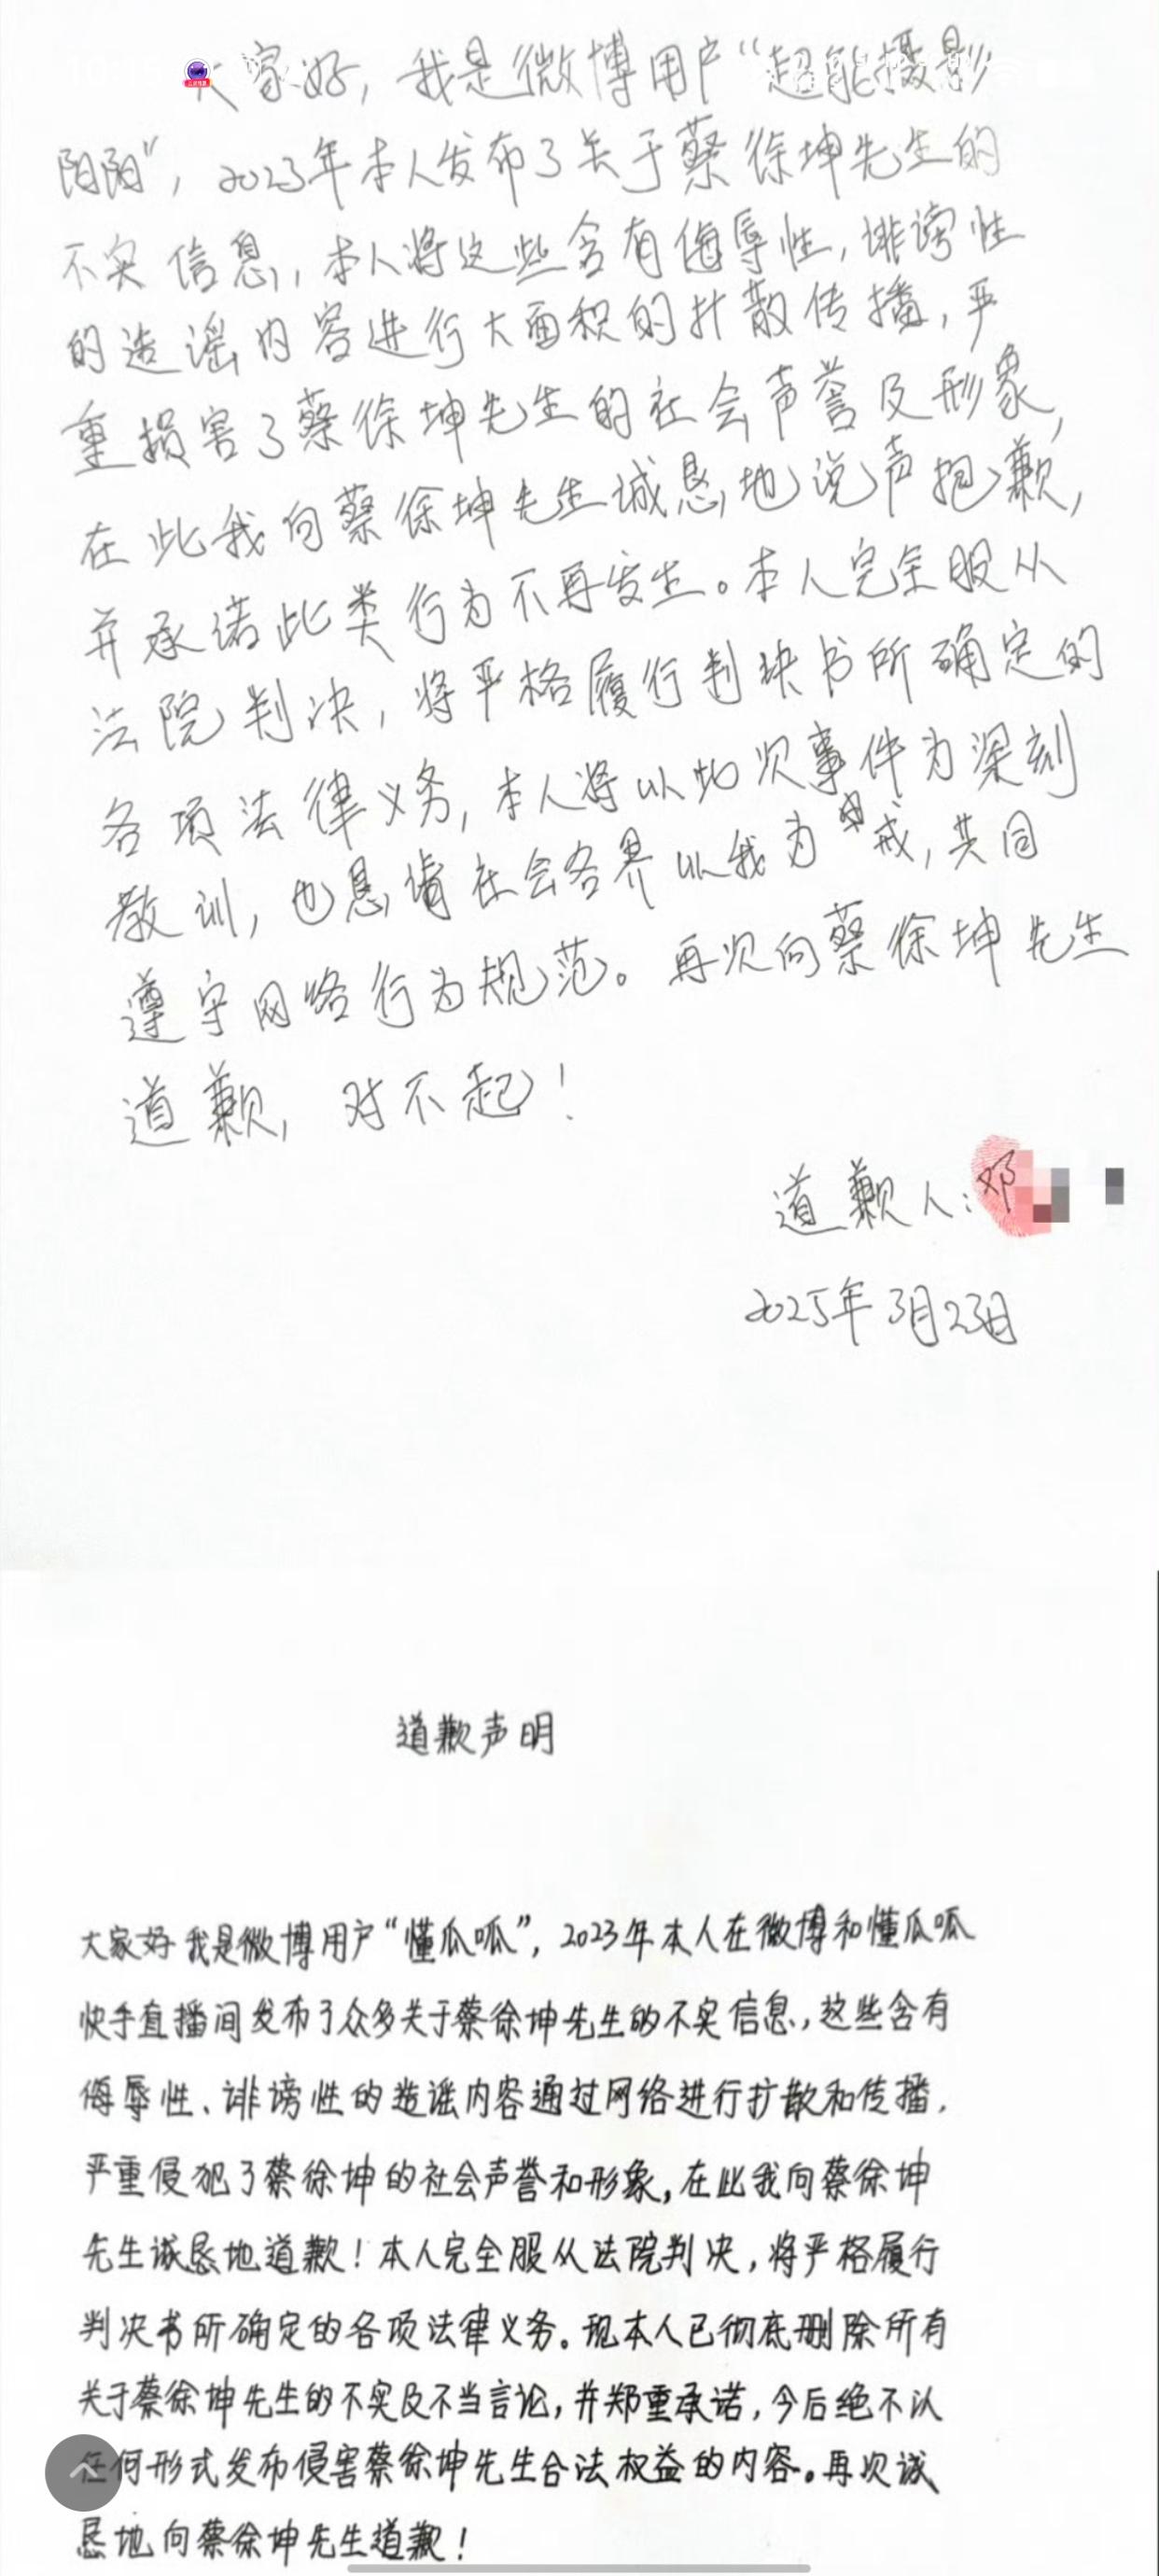 大家好，我是微博用户“超能摄影
阳阳”，2023年本人发布了关于蔡徐坤先生的
不实信息，本人将这些含有侮辱性，诽谤性
的造谣内容进行大面积的扩散传播，严
重损害了蔡徐坤先生的社会声誉及形象，
在此我向蔡徐坤先生诚恳地说声抱歉，
并承诺此类行为不再发生。本人完全服从
法院判决，将严格履行判决书所确定的
各项法律义务，本人将以此次事件为深刻
教训，也恳请社会各界以我为戒，共同
遵守网络行为规范。再次向蔡徐坤先生
道歉，对不起！
道歉人：邓
2025年3月23日
道歉声明
大家好我是微博用户“懂瓜呱”，2023年本人在微博和懂瓜呱
快手直播间发布了众多关于蔡徐坤先生的不实信息，这些含有
侮辱性、诽谤性的造谣内容通过网络进行扩散和传播，
严重侵犯了蔡徐坤的社会声誉和形象，在此我向蔡徐坤
先生诚恳地道歉！本人完全服从法院判决，将严格履行
判决书所确定的各项法律义务。现本人已彻底删除所有
关于蔡徐坤先生的不实及不当言论，并郑重承诺，今后绝不以
任何形式发布侵害蔡徐坤先生合法权益的内容。再次诚
恳地向蔡徐坤先生道歉！